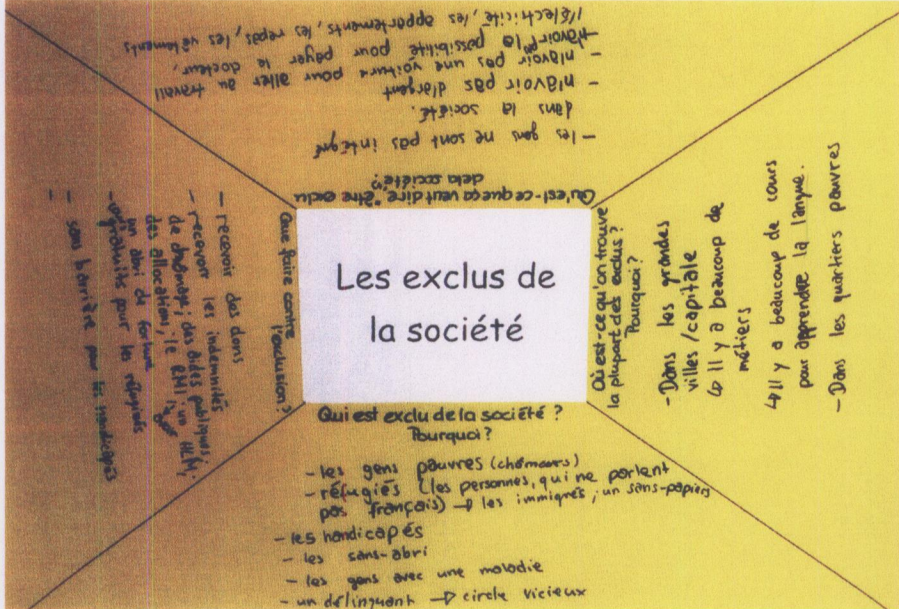 Les exclus de
la société
Qu'est-ce que ça veut dire "être exclu
de la société"?
- les gens ne sont pas intégré
dans la société.
- n'avoir pas d'argent
- n'avoir pas une voiture pour aller au travail
n'avoir pas la possibilité pour payer le docteur,
l'électricité, les appartements, les repas, les vêtements
Où est-ce qu'on trouve
la plupart des exclus?
Pourquoi?
- Dans les grandes
villes / capitale
↳ Il y a beaucoup de
métiers
↳ Il y a beaucoup de cours
pour apprendre la langue.
- Dans les quartiers pauvres
Qui est exclu de la société ?
Pourquoi?
- les gens pauvres (chômeurs)
- réfugiés (les personnes, qui ne parlent
pas français) → les immigrés, un sans-papiers
- les handicapés
- les sans-abri
- les gens avec une maladie
- un délinquant → circle vicieux
Que faire contre
l'exclusion?
- recevoir des dons
- recevoir les indemnités
de chômage; des aides publiques;
des allocation; le RMI; un HLM,
un abri de fortune
gratuits pour les réfugiés
- sans barrière pour les handicapés
-